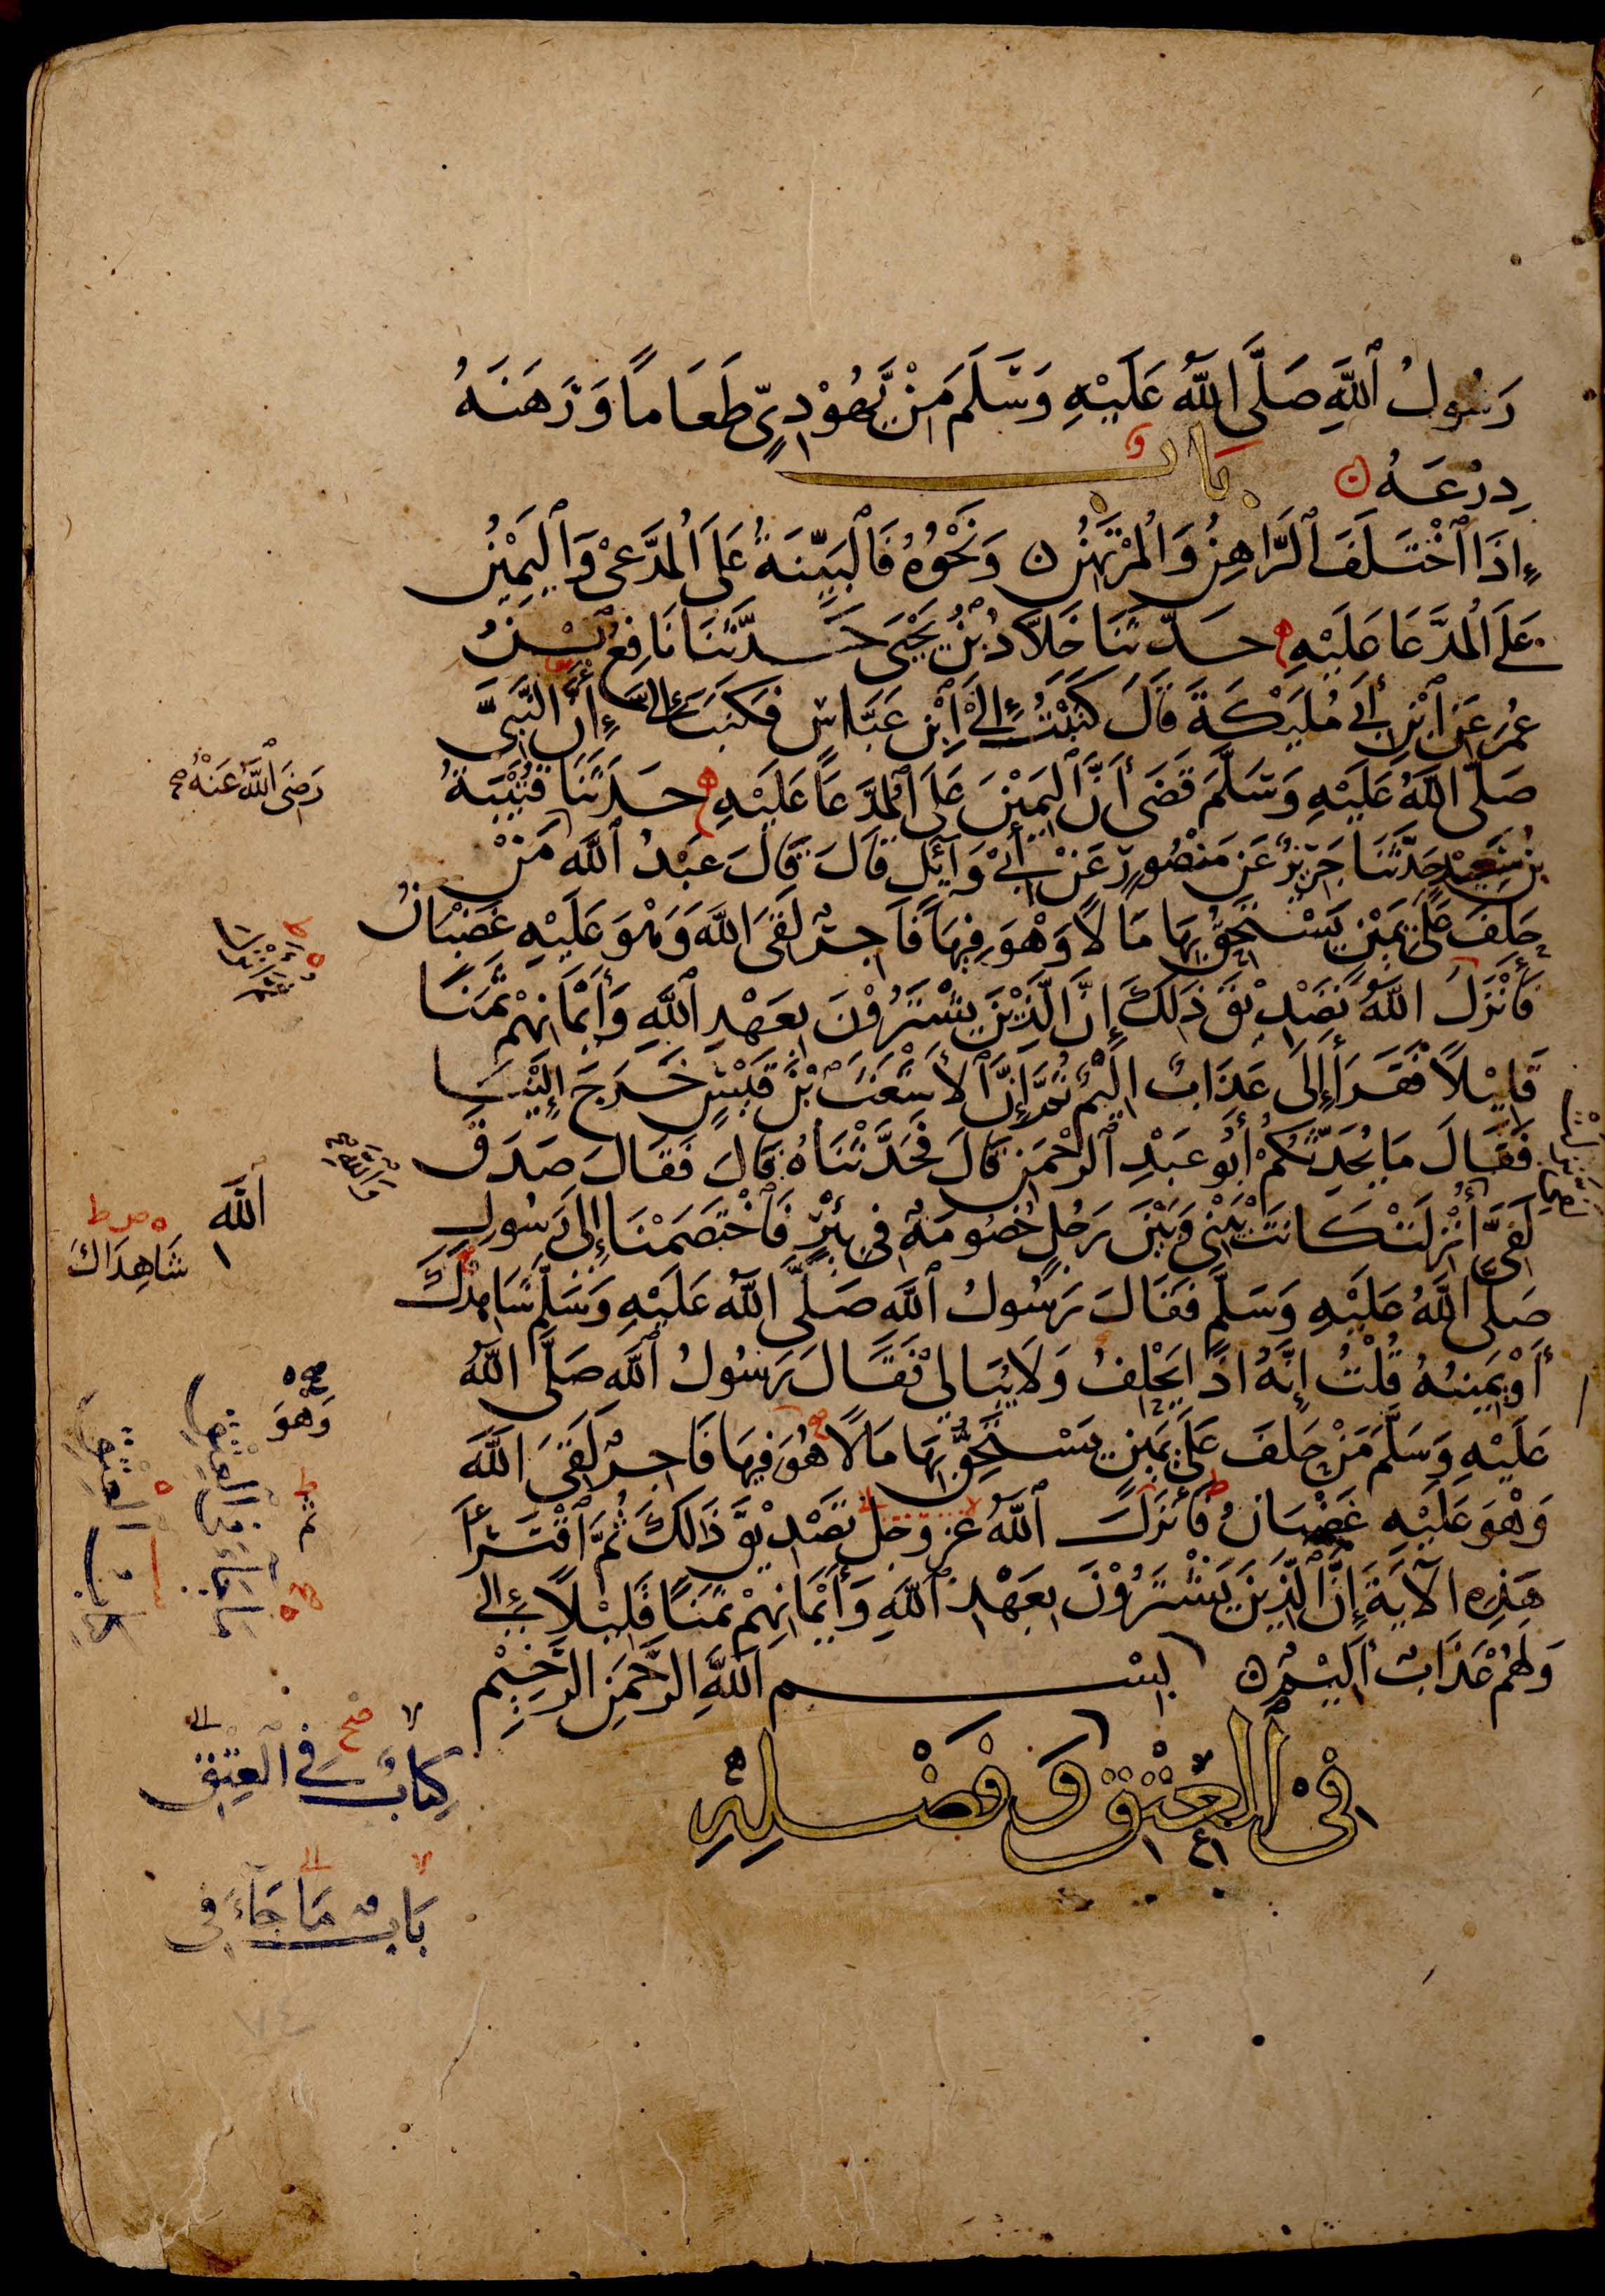 رَسُولُ ٱللَّهِ صَلَّى ٱللَّهُ عَلَيْهِ وَسَلَّمَ مِنْ يَّهُوْدِيٍّ طَعَامًا وَّرَهَنَهُ
دِرْعَهُ ن بَابٌ
إِذَا ٱخْتَلَفَ ٱلرَّاهِنُ وَالْمُرْتَهِنُ ن وَنَحْوُهُ فَالْبَيِّنَةُ عَلَى الْمُدَّعِىْ وَالْيَمِيْنُ
عَلَى الْمُدَّعَا عَلَيْهِ حَدَّثَنَا خَلَّادُ بْنُ يَحْيَى حَدَّثَنَا نَافِعُ بْنُ
عُمَرَ عَنِ ٱبْنِ أَبِى مُلَيْكَةَ قَالَ كَتَبْتُ إِلَى ٱبْنِ عَبَّاسٍ فَكَتَبَ إِلَىَّ إِنَّ النَّبِىَّ
صَلَّى اللَّهُ عَلَيْهِ وَسَلَّمَ قَضَى أَنَّ ٱلْيَمِيْنَ عَلَى ٱلْمُدَّعَا عَلَيْهِ حَدَّثَنَا قُتَيْبَةُ
بْنُ سَعِيْدٍ حَدَّثَنَا جَرِيْرٌ عَنْ مَنْصُورٍ عَنْ أَبِىْ وَآئِلٍ قَالَ قَالَ عَبْدُ ٱللَّهِ مَنْ
حَلَفَ عَلَى يَمِيْنٍ يَسْتَحِقُّ بِهَا مَالًا وَهْوَ فِيهَا فَاجِرٌ لَقِىَ اللَّهَ وَهْوَ عَلَيْهِ غَضْبَانُ
فَأَنْزَلَ اللَّهُ تَصْدِيْقَ ذَلِكَ إِنَّ الَّذِيْنَ يَشْتَرُوْنَ بِعَهْدِ ٱللَّهِ وَأَيْمَانِهِمْ ثَمَنًا
قَلِيْلًا فَقَرَأَ إِلَى عَذَابٌ الِيْمٌ ثُمَّ إِنَّ ٱلْأَشْعَثَ بْنَ قَيْسٍ خَرَجَ إِلَيْنَا
فَقَالَ مَا يُحَدِّثُكُمْ أَبُو عَبْدِ ٱلرَّحْمَنِ قَالَ فَحَدَّثْنَاهُ قَالَ فَقَالَ صَدَقَ
لَفِىَّ أُنْزِلَتْ كَانَتْ بَيْنِى وَبَيْنَ رَجُلٍ خُصُومَةٌ فِى بِئْرٍ فَاخْتَصَمْنَا إِلَى رَسُولِ
صَلَّى اللَّهُ عَلَيْهِ وَسَلَّمَ فَقَالَ رَسُولُ ٱللَّهِ صَلَّى اللَّهُ عَلَيْهِ وَسَلَّمَ شَاهِدُكَ
أَوْ يَمِينُهُ قُلْتُ إِنَّهُ اذًا يَحْلِفُ وَلَا يُبَالِىْ فَقَالَ رَسُولُ ٱللَّهِ صَلَّى اللَّهُ
عَلَيْهِ وَسَلَّمَ مَنْ حَلَفَ عَلَى يَمِينٍ يَسْتَحِقُّ بِهَا مَالًا هُوَ فِيهَا فَاجِرٌ لَقِىَ اللَّهَ
وَهْوَ عَلَيْهِ غَضْبَانُ فَأَنْزَلَ ٱللَّهُ عَزَّ وَجَلَّ تَصْدِيْقَ ذَالِكَ ثُمَّ ٱقْتَرَأَ
هَذِهِ الْآيَةَ إِنَّ الَّذِيْنَ يَشْتَرُوْنَ بِعَهْدِ ٱللَّهِ وَأَيْمَانِهِمْ ثَمَنًا قَلِيْلًا إِلَى
وَلَهُمْ عَذَابٌ أَلِيْمٌ ن بِسْمِ اللَّهِ الرَّحْمَنِ الرَّحِيْمِ
فِىْ ٱلْعِتْقِ وَفَضْلِهِ
رَضِىَ ٱللَّهُ عَنْهُ صح
وَٱللَّهِ
ٱللَّهِ
ه ص ط
شَاهِدَاكَ
صح ه
وَهوَ
كِتَابٌ فِى ٱلْعِتْقِ
بَابُ مَا جَآءَ فِى
٧٤